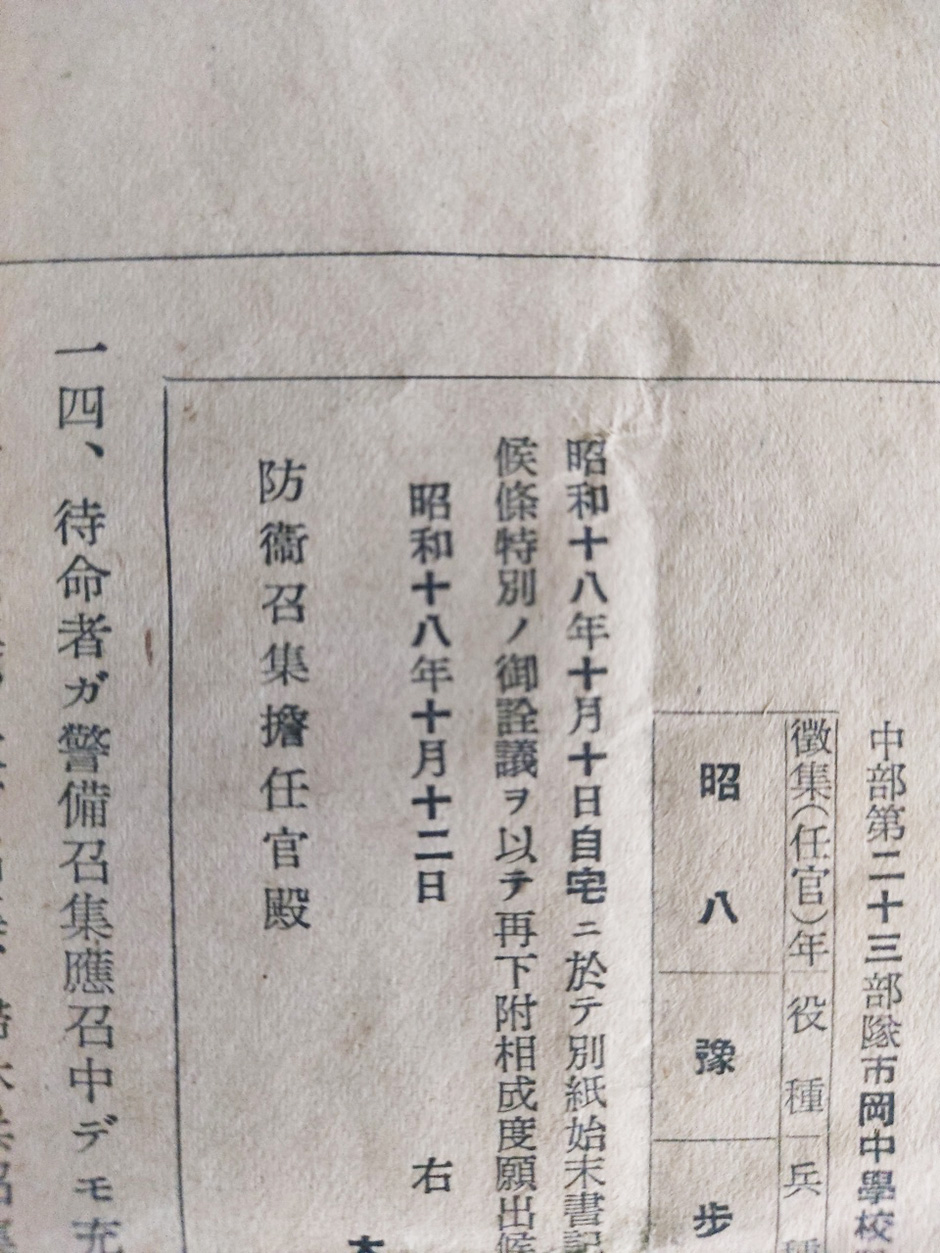 中部第二十三部隊市岡中學校
徵集(任官)年 役種 兵
昭八 豫 步
昭和十八年十月十日自宅ニ於テ別紙始末書記
候條特別ノ御詮議ヲ以テ再下附相成度願出候
昭和十八年十月十二日
右
防衞召集擔任官殿
一四、待命者ガ警備召集應召中デモ充